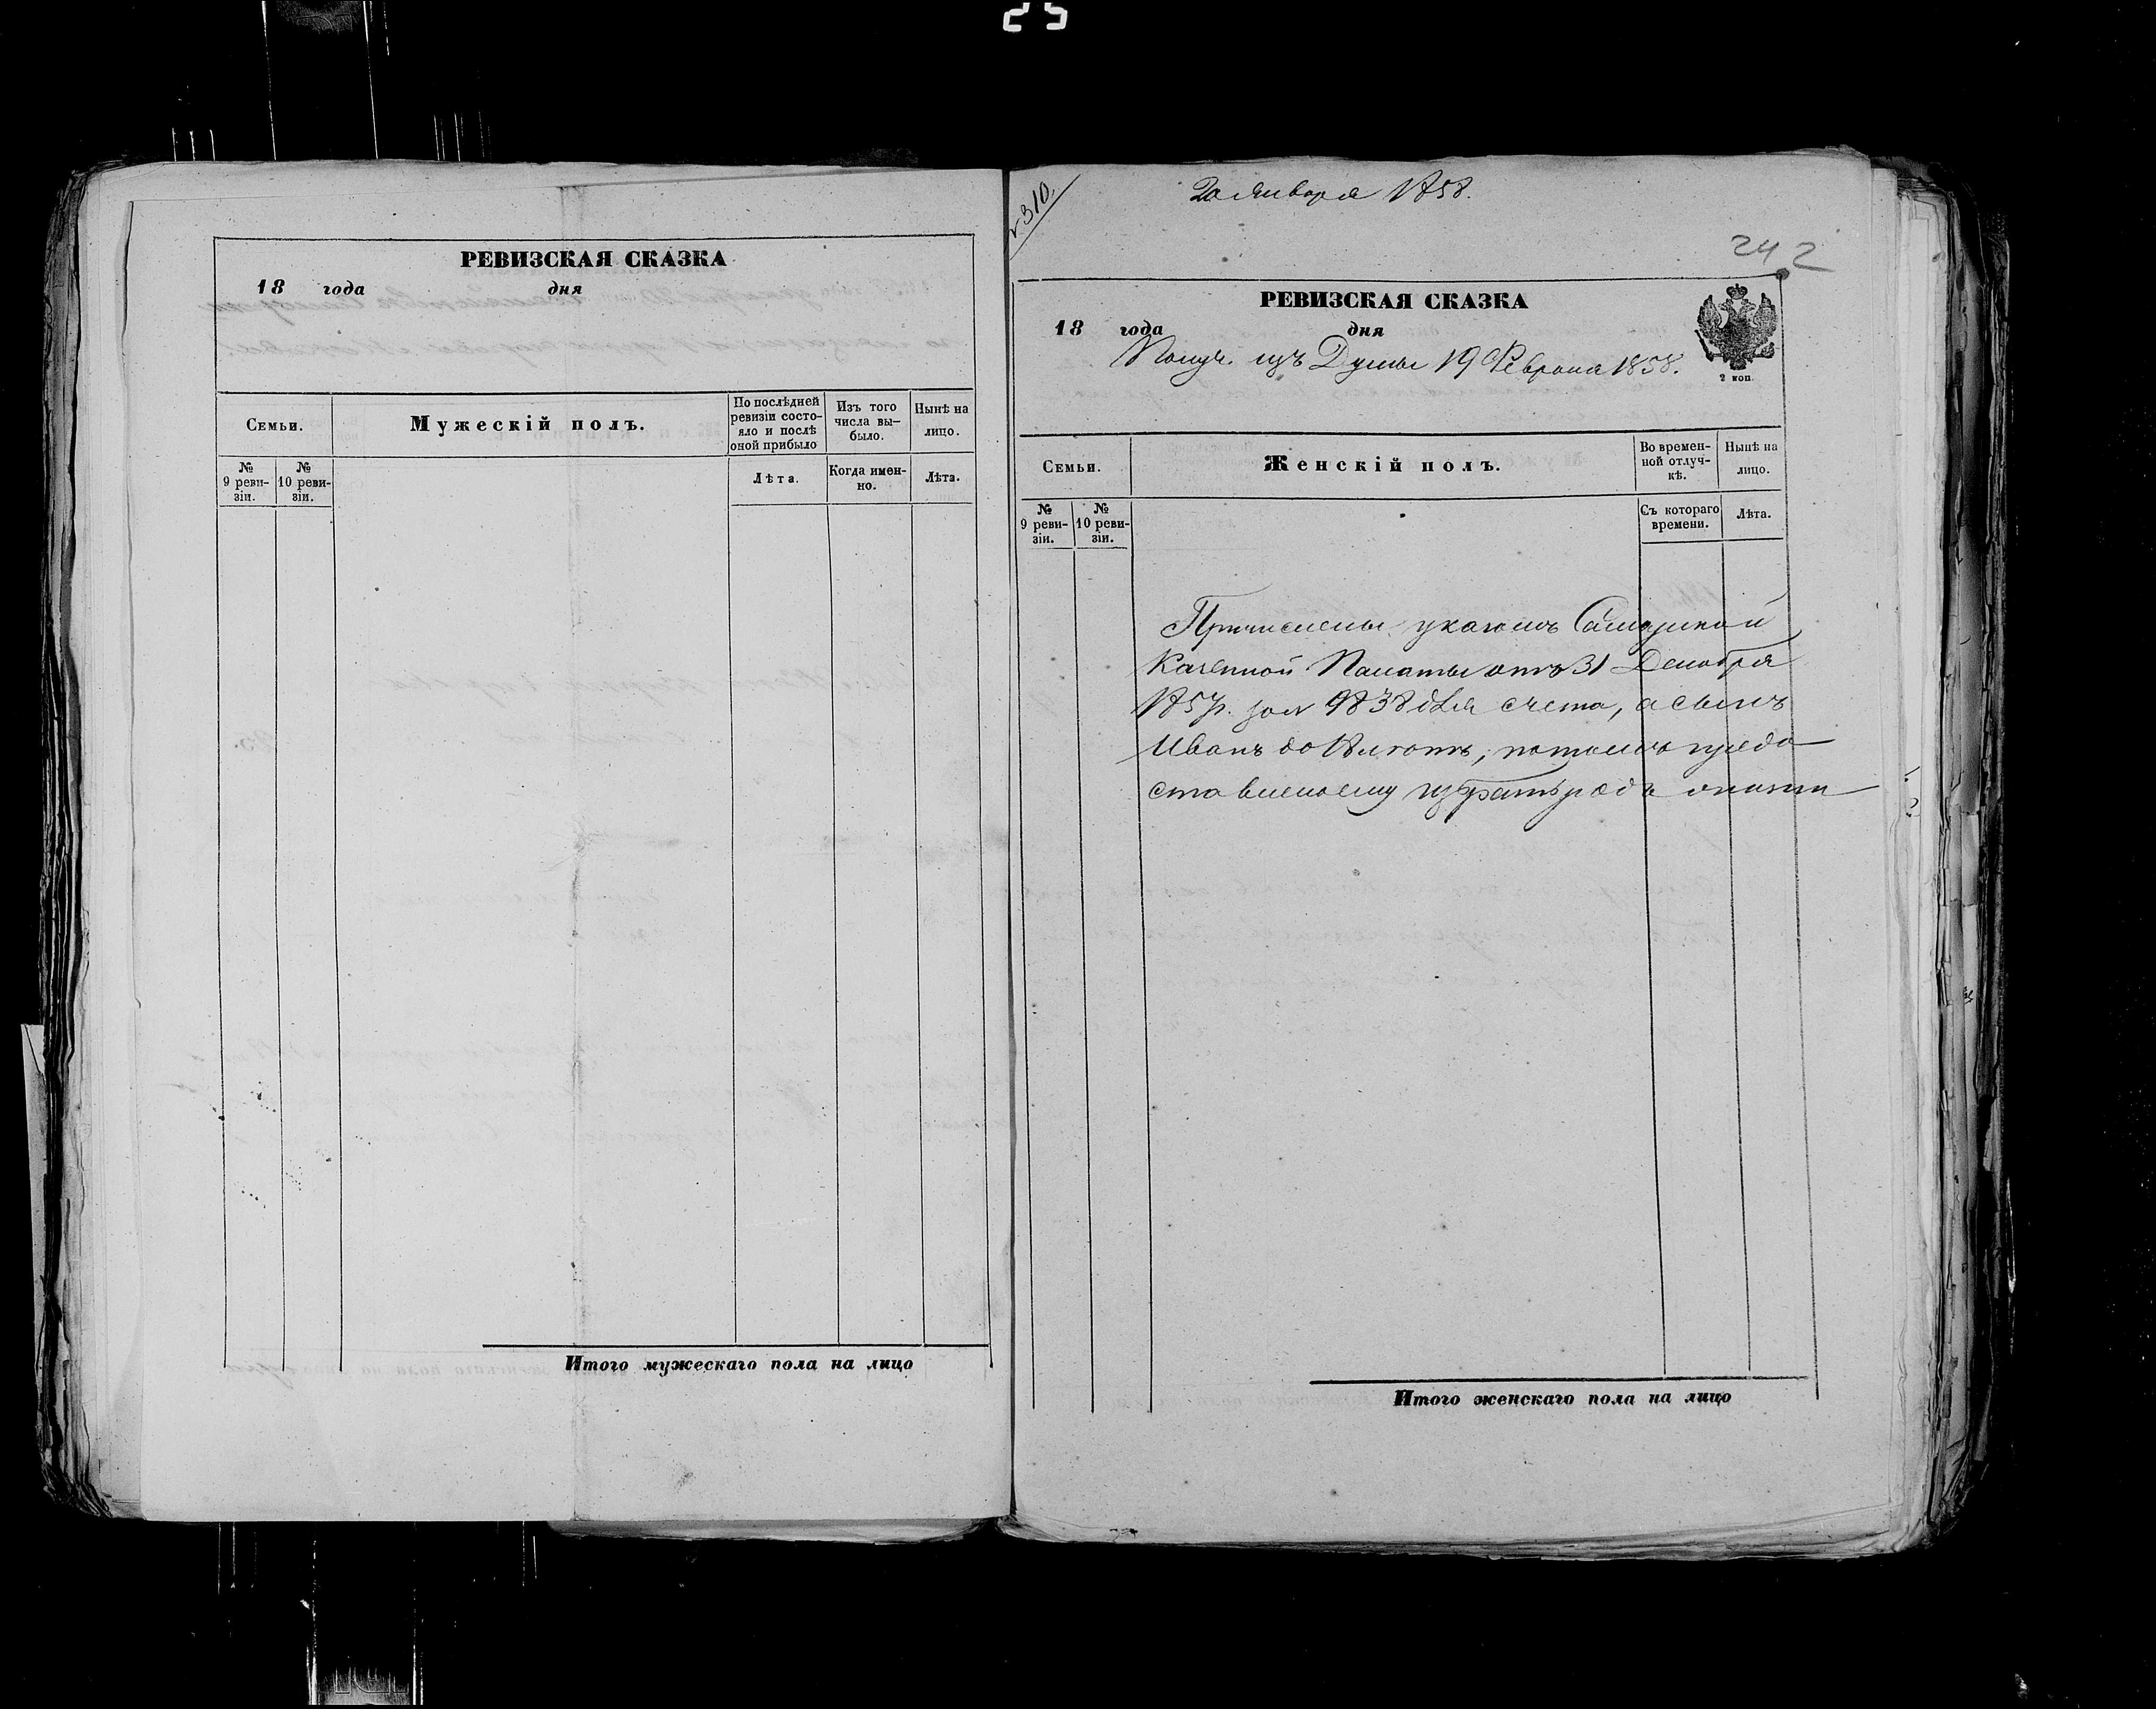 25
РЕВИЗСКАЯ СКАЗКА
18 года дня
Семьи.
Мужескій полъ.
По послѣдней ревизіи состояло и послѣ оной прибыло
Изъ того числа вы-
было.
Нынѣ на
лицо.
№
9 реви-
зіи.
№
10 реви-
зіи.
Лѣта.
Когда имен-
но.
Лѣта.
Итого мужескаго пола на лицо
310.
20 Января 1858.
242
РЕВИЗСКАЯ СКАЗКА
18 года дня
2 коп.
Получ. изъ Думы 19 Февраля 1858.
Семьи.
Женскій полъ.
Во времен-
ной отлуч-
кѣ.
Нынѣ на
лицо.
№
9 реви-
зіи.
№
10 реви-
зіи.
Съ котораго
времени.
Лѣта.
Причислены указомъ Самарской
Казенной Палаты отъ 31 Декабря
1857. за № 9838 для счета, а сынъ
Иванъ до лѣтъ, потомъ предо
ставлено ему избрать родъ жизни
Итого женскаго пола на лицо